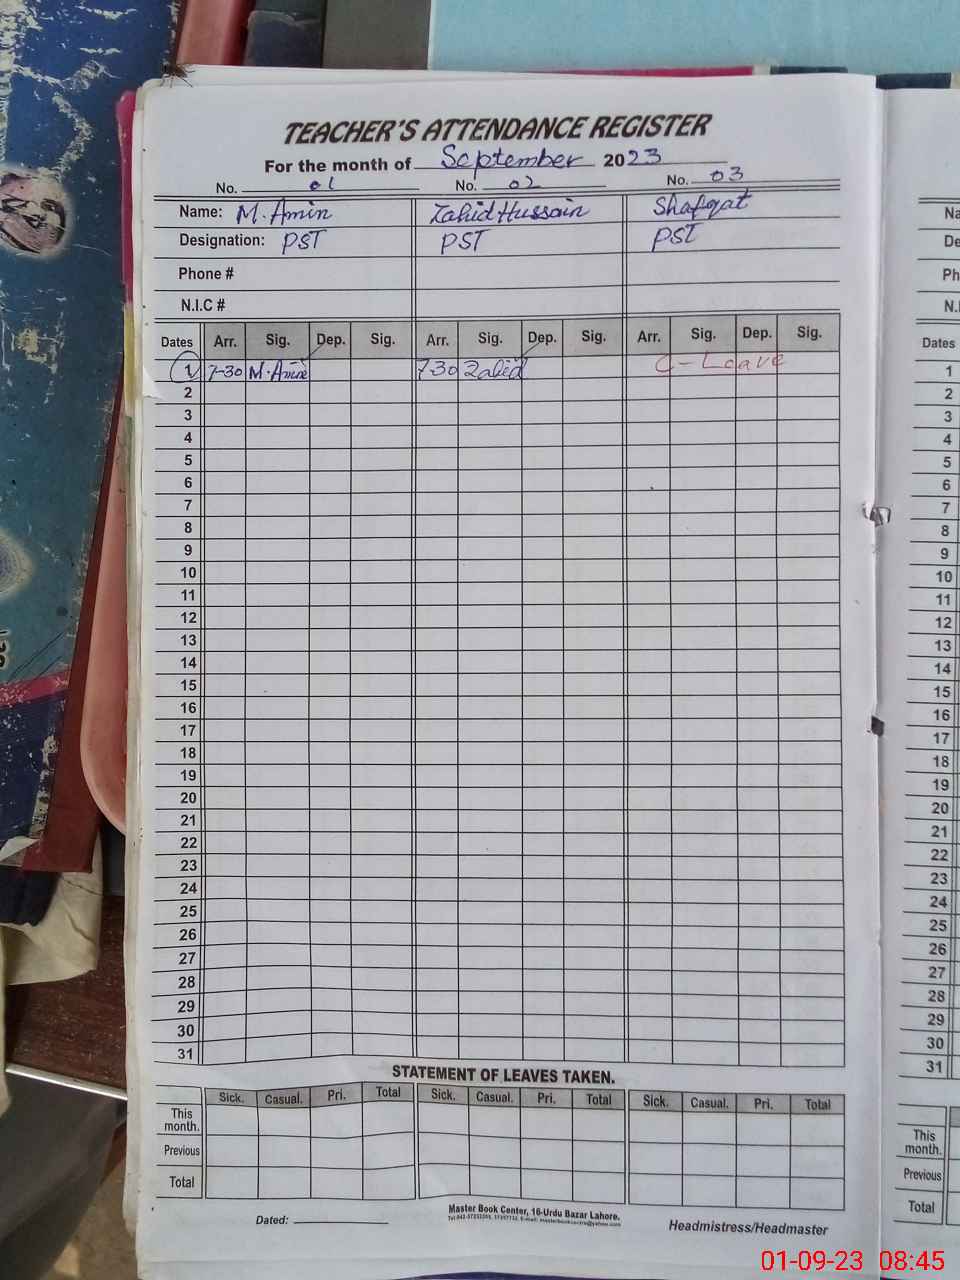 TEACHER'S ATTENDANCE REGISTER
For the month of September 2023
No. 01 No. 02 No. 03
Name: M. Amin Zahid Hussain Shafqat
Designation: PST PST PST
Phone #
N.I.C #
Dates Arr. Sig. Dep. Sig. Arr. Sig. Dep. Sig. Arr. Sig. Dep. Sig.
1 7-30 M. Amin 7-30 Zahid C-Leave
2
3
4
5
6
7
8
9
10
11
12
13
14
15
16
17
18
19
20
21
22
23
24
25
26
27
28
29
30
31
STATEMENT OF LEAVES TAKEN.
Sick. Casual. Pri. Total Sick. Casual. Pri. Total Sick. Casual. Pri. Total
This month.
Previous
Total
Dated:
Master Book Center, 16-Urdu Bazar Lahore.
Headmistress/Headmaster
Na
De
Ph
N.I
Dates
1
2
3
4
5
6
7
8
9
10
11
12
13
14
15
16
17
18
19
20
21
22
23
24
25
26
27
28
29
30
31
This month.
Previous
Total
01-09-23 08:45